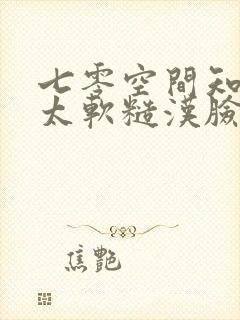 七零空間知
太軟糙漢臉
焦艷